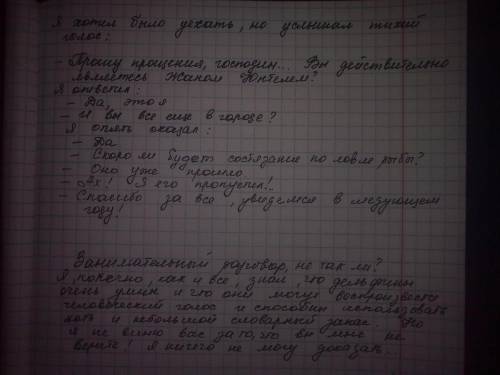 Я хотел было уехать, но услышал тихий
голос:
- Прошу прощения, господин... Вы действительно
являетесь Жаном Юнтелем?
Я ответил:
- Да, это я
- И вы все еще в городе?
Я опять сказал:
- Да
- Скоро ли будет состязание по ловле рыбы?
- Оно уже прошло.
- Ах! Я его пропустил!..
- Спасибо за все, увидемся в следующем
году!
Занимательный разговор, не так ли?
Я, конечно, как и все, знал, что дельфины
очень умны и что они могут воспроизвести
человеческий голос и способны использовать
хоть и небольшой словарный запас. Но
я не виню вас за то, что вы мне не
верите! Я ничего не могу доказать.